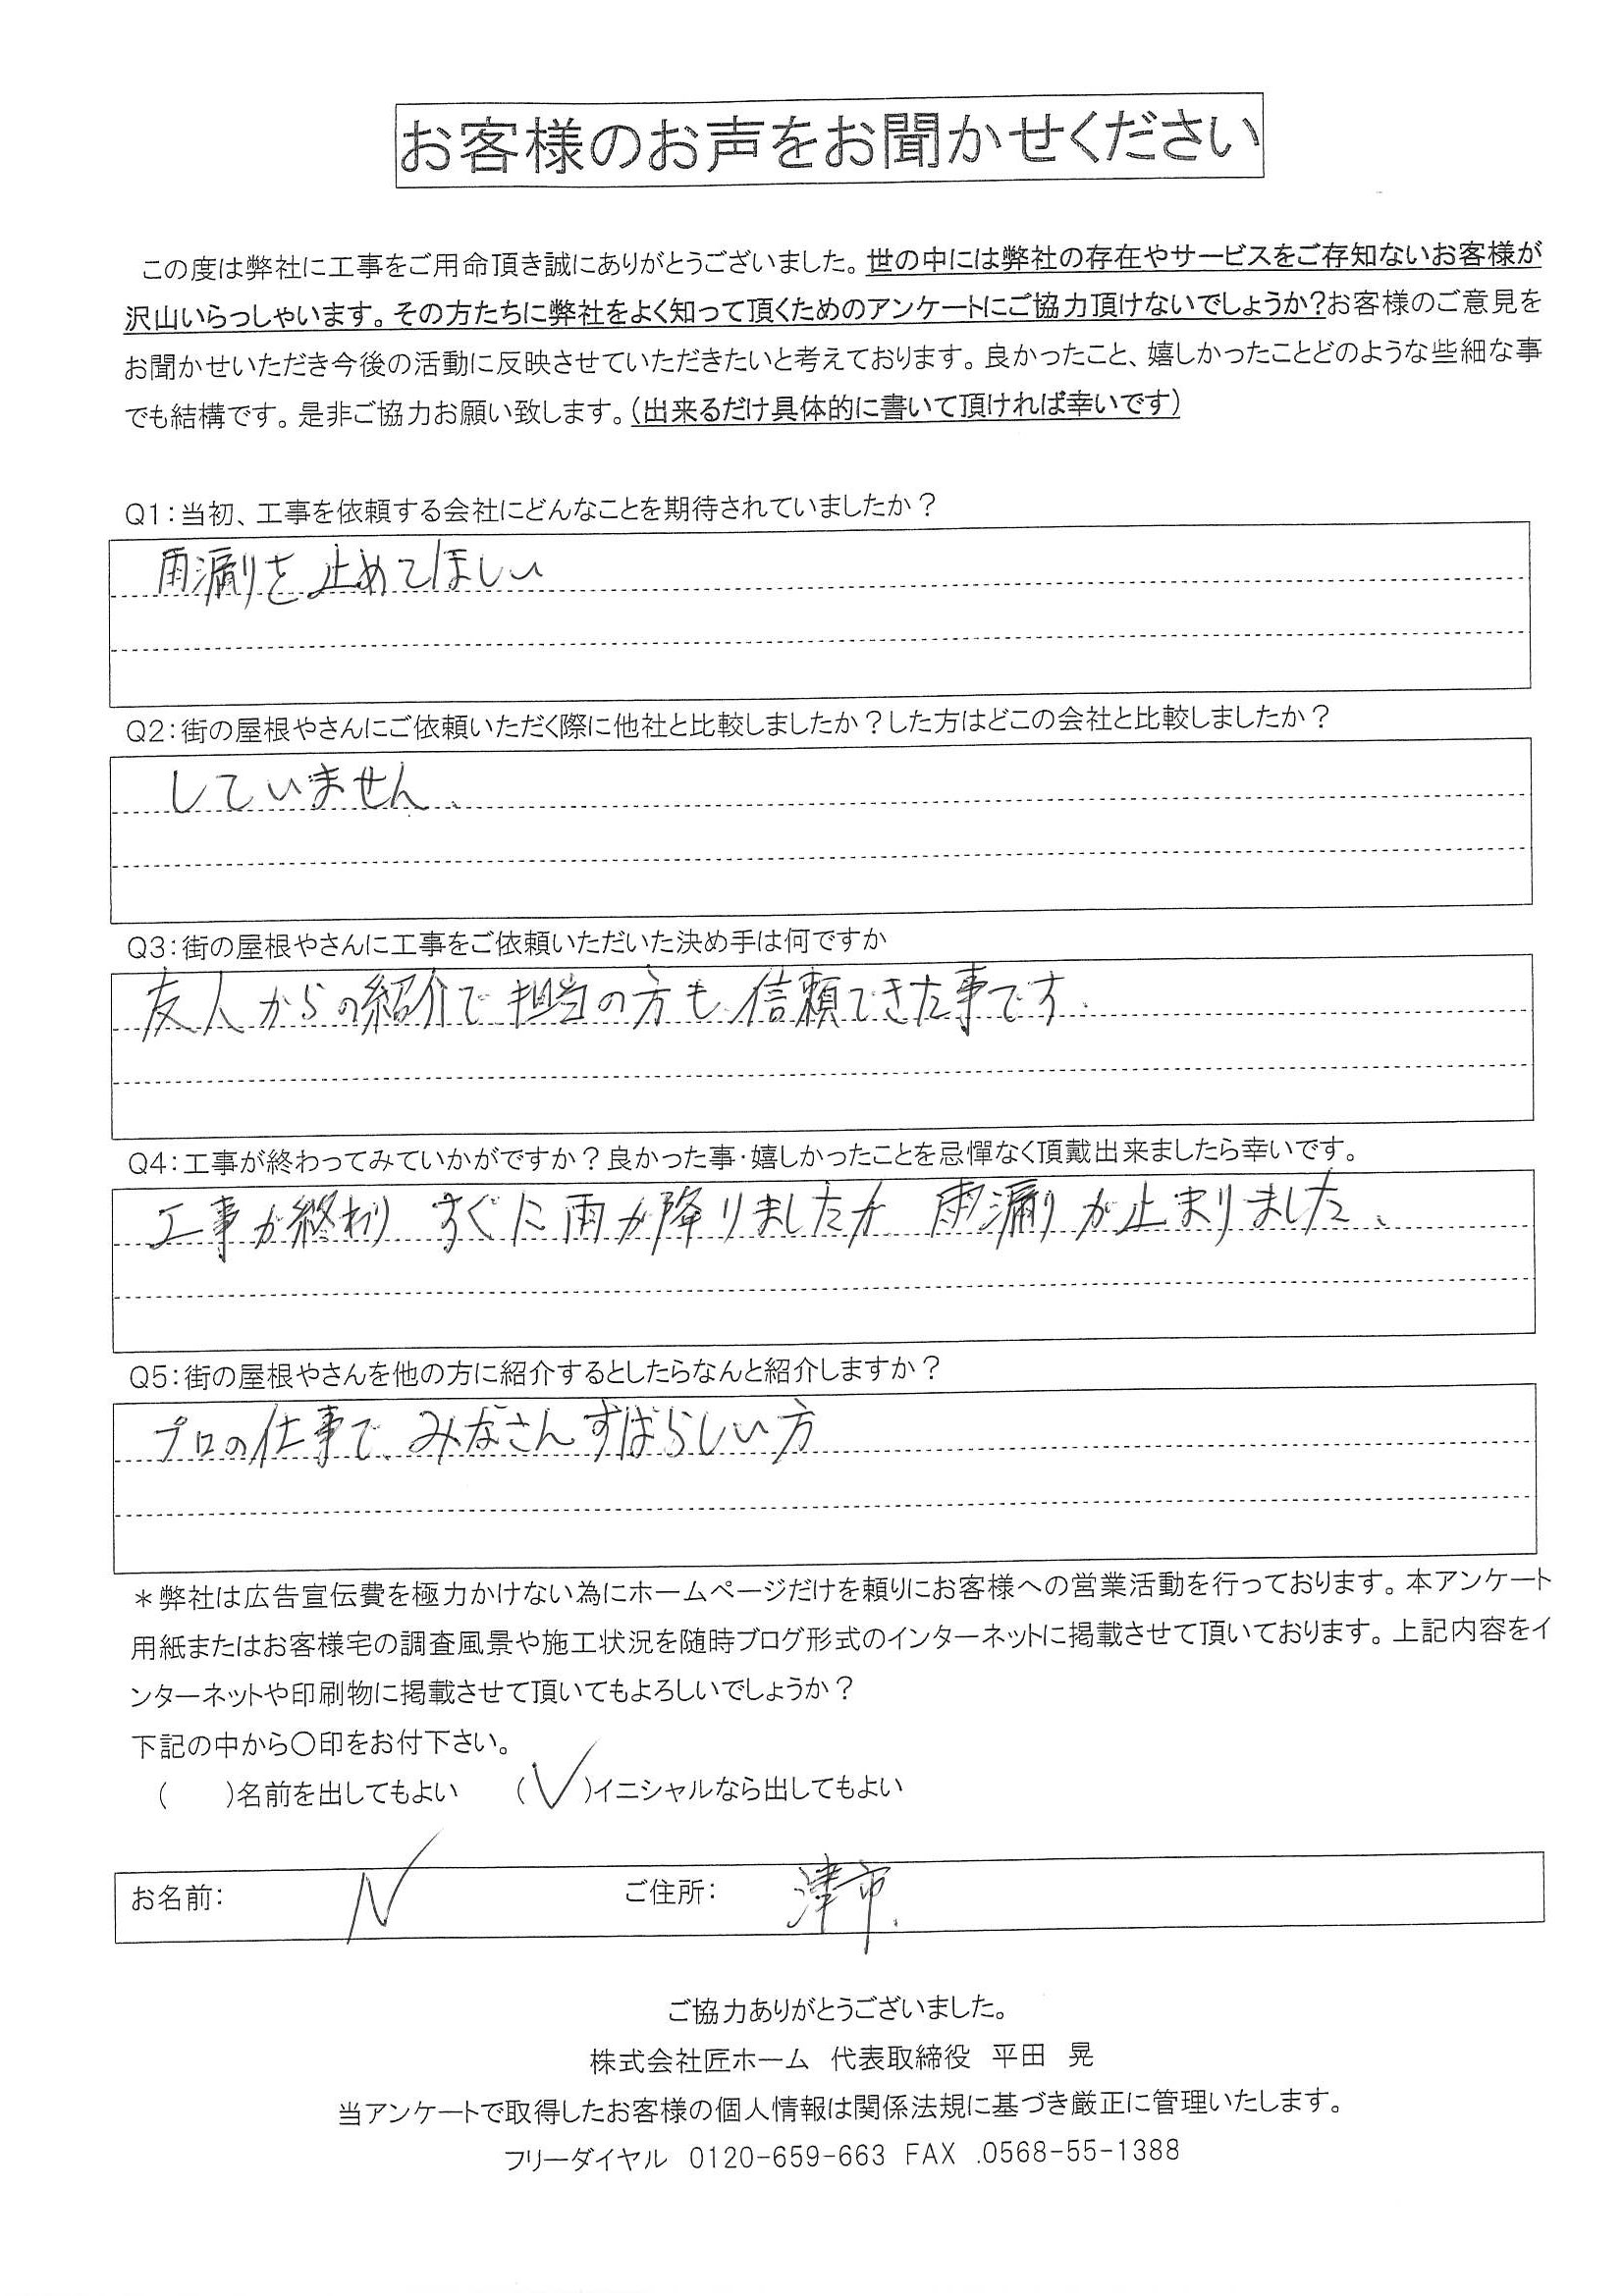 お客様のお声をお聞かせください
この度は弊社に工事をご用命頂き誠にありがとうございました。世の中には弊社の存在やサービスをご存知ないお客様が
沢山いらっしゃいます。その方たちに弊社をよく知って頂くためのアンケートにご協力頂けないでしょうか?お客様のご意見を
お聞かせいただき今後の活動に反映させていただきたいと考えております。良かったこと、嬉しかったことどのような些細な事
でも結構です。是非ご協力お願い致します。(出来るだけ具体的に書いて頂ければ幸いです)
Q1:当初、工事を依頼する会社にどんなことを期待されていましたか?
雨漏りを止めてほしい
Q2:街の屋根やさんにご依頼いただく際に他社と比較しましたか?した方はどこの会社と比較しましたか?
していません.
Q3:街の屋根やさんに工事をご依頼いただいた決め手は何ですか
友人からの紹介で担当の方も信頼できた事です.
Q4:工事が終わってみていかがですか?良かった事・嬉しかったことを忌憚なく頂戴出来ましたら幸いです。
工事が終わりすぐに雨が降りましたが雨漏りが止まりました、
Q5:街の屋根やさんを他の方に紹介するとしたらなんと紹介しますか?
プロの仕事で、みなさんすばらしい方
*弊社は広告宣伝費を極力かけない為にホームページだけを頼りにお客様への営業活動を行っております。本アンケート
用紙またはお客様宅の調査風景や施工状況を随時ブログ形式のインターネットに掲載させて頂いております。上記内容をイ
ンターネットや印刷物に掲載させて頂いてもよろしいでしょうか?
下記の中から〇印をお付下さい。
(　　)名前を出してもよい　(✓)イニシャルなら出してもよい
お名前: N ご住所: 津市.
ご協力ありがとうございました。
株式会社匠ホーム 代表取締役 平田 晃
当アンケートで取得したお客様の個人情報は関係法規に基づき厳正に管理いたします。
フリーダイヤル 0120-659-663 FAX .0568-55-1388